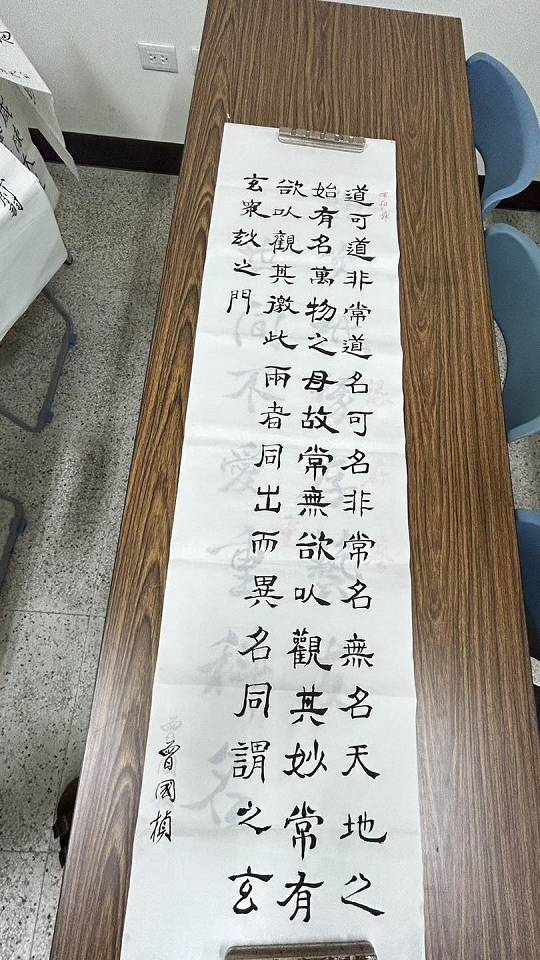 道可道非常道名可名非常名無名天地之
始有名萬物之母故常無欲以觀其妙常有
欲以觀其徼此兩者同出而異名同謂之玄
玄眾玅之門
曾國楨